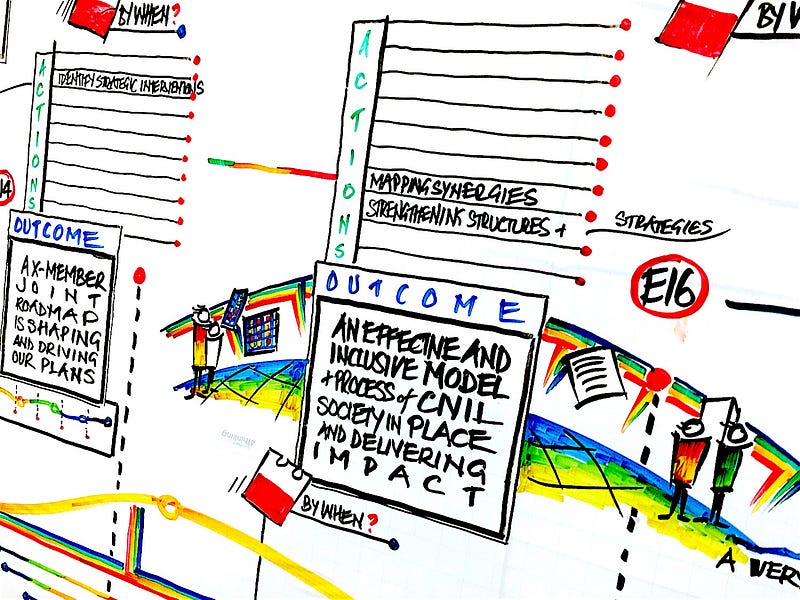 BY WHEN?
ACTIONS
IDENTIFY STRATEGIC INTERVENTIONS
14
OUTCOME
A X-MEMBER
JOINT
ROADMAP
IS SHAPING
AND DRIVING
OUR PLANS
ACTIONS
MAPPING SYNERGIES
STRENGTHENINK STRUCTURES + STRATEGIES
OUTCOME
AN EFFECTINE AND
INCLUSIVE MODEL
+ PROCESS of CNIL
SOCIETY IN PLACE
AND DELIVERING
IMPACT
BY WHEN?
BY W
E16
A VER